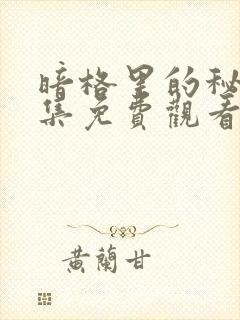 暗格里的秘
集免費觀看
黃蘭甘